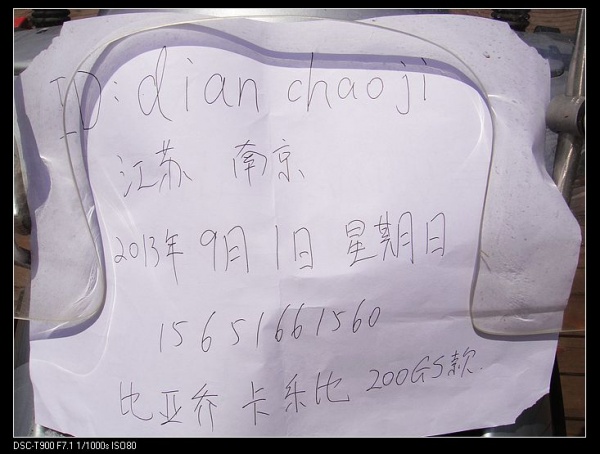 ID: dian chaoji
江苏 南京
2013年 9月 1日 星期日
15651661560
比亚乔 卡乐比 200GS款
DSC-T900 F7.1 1/1000s ISO80